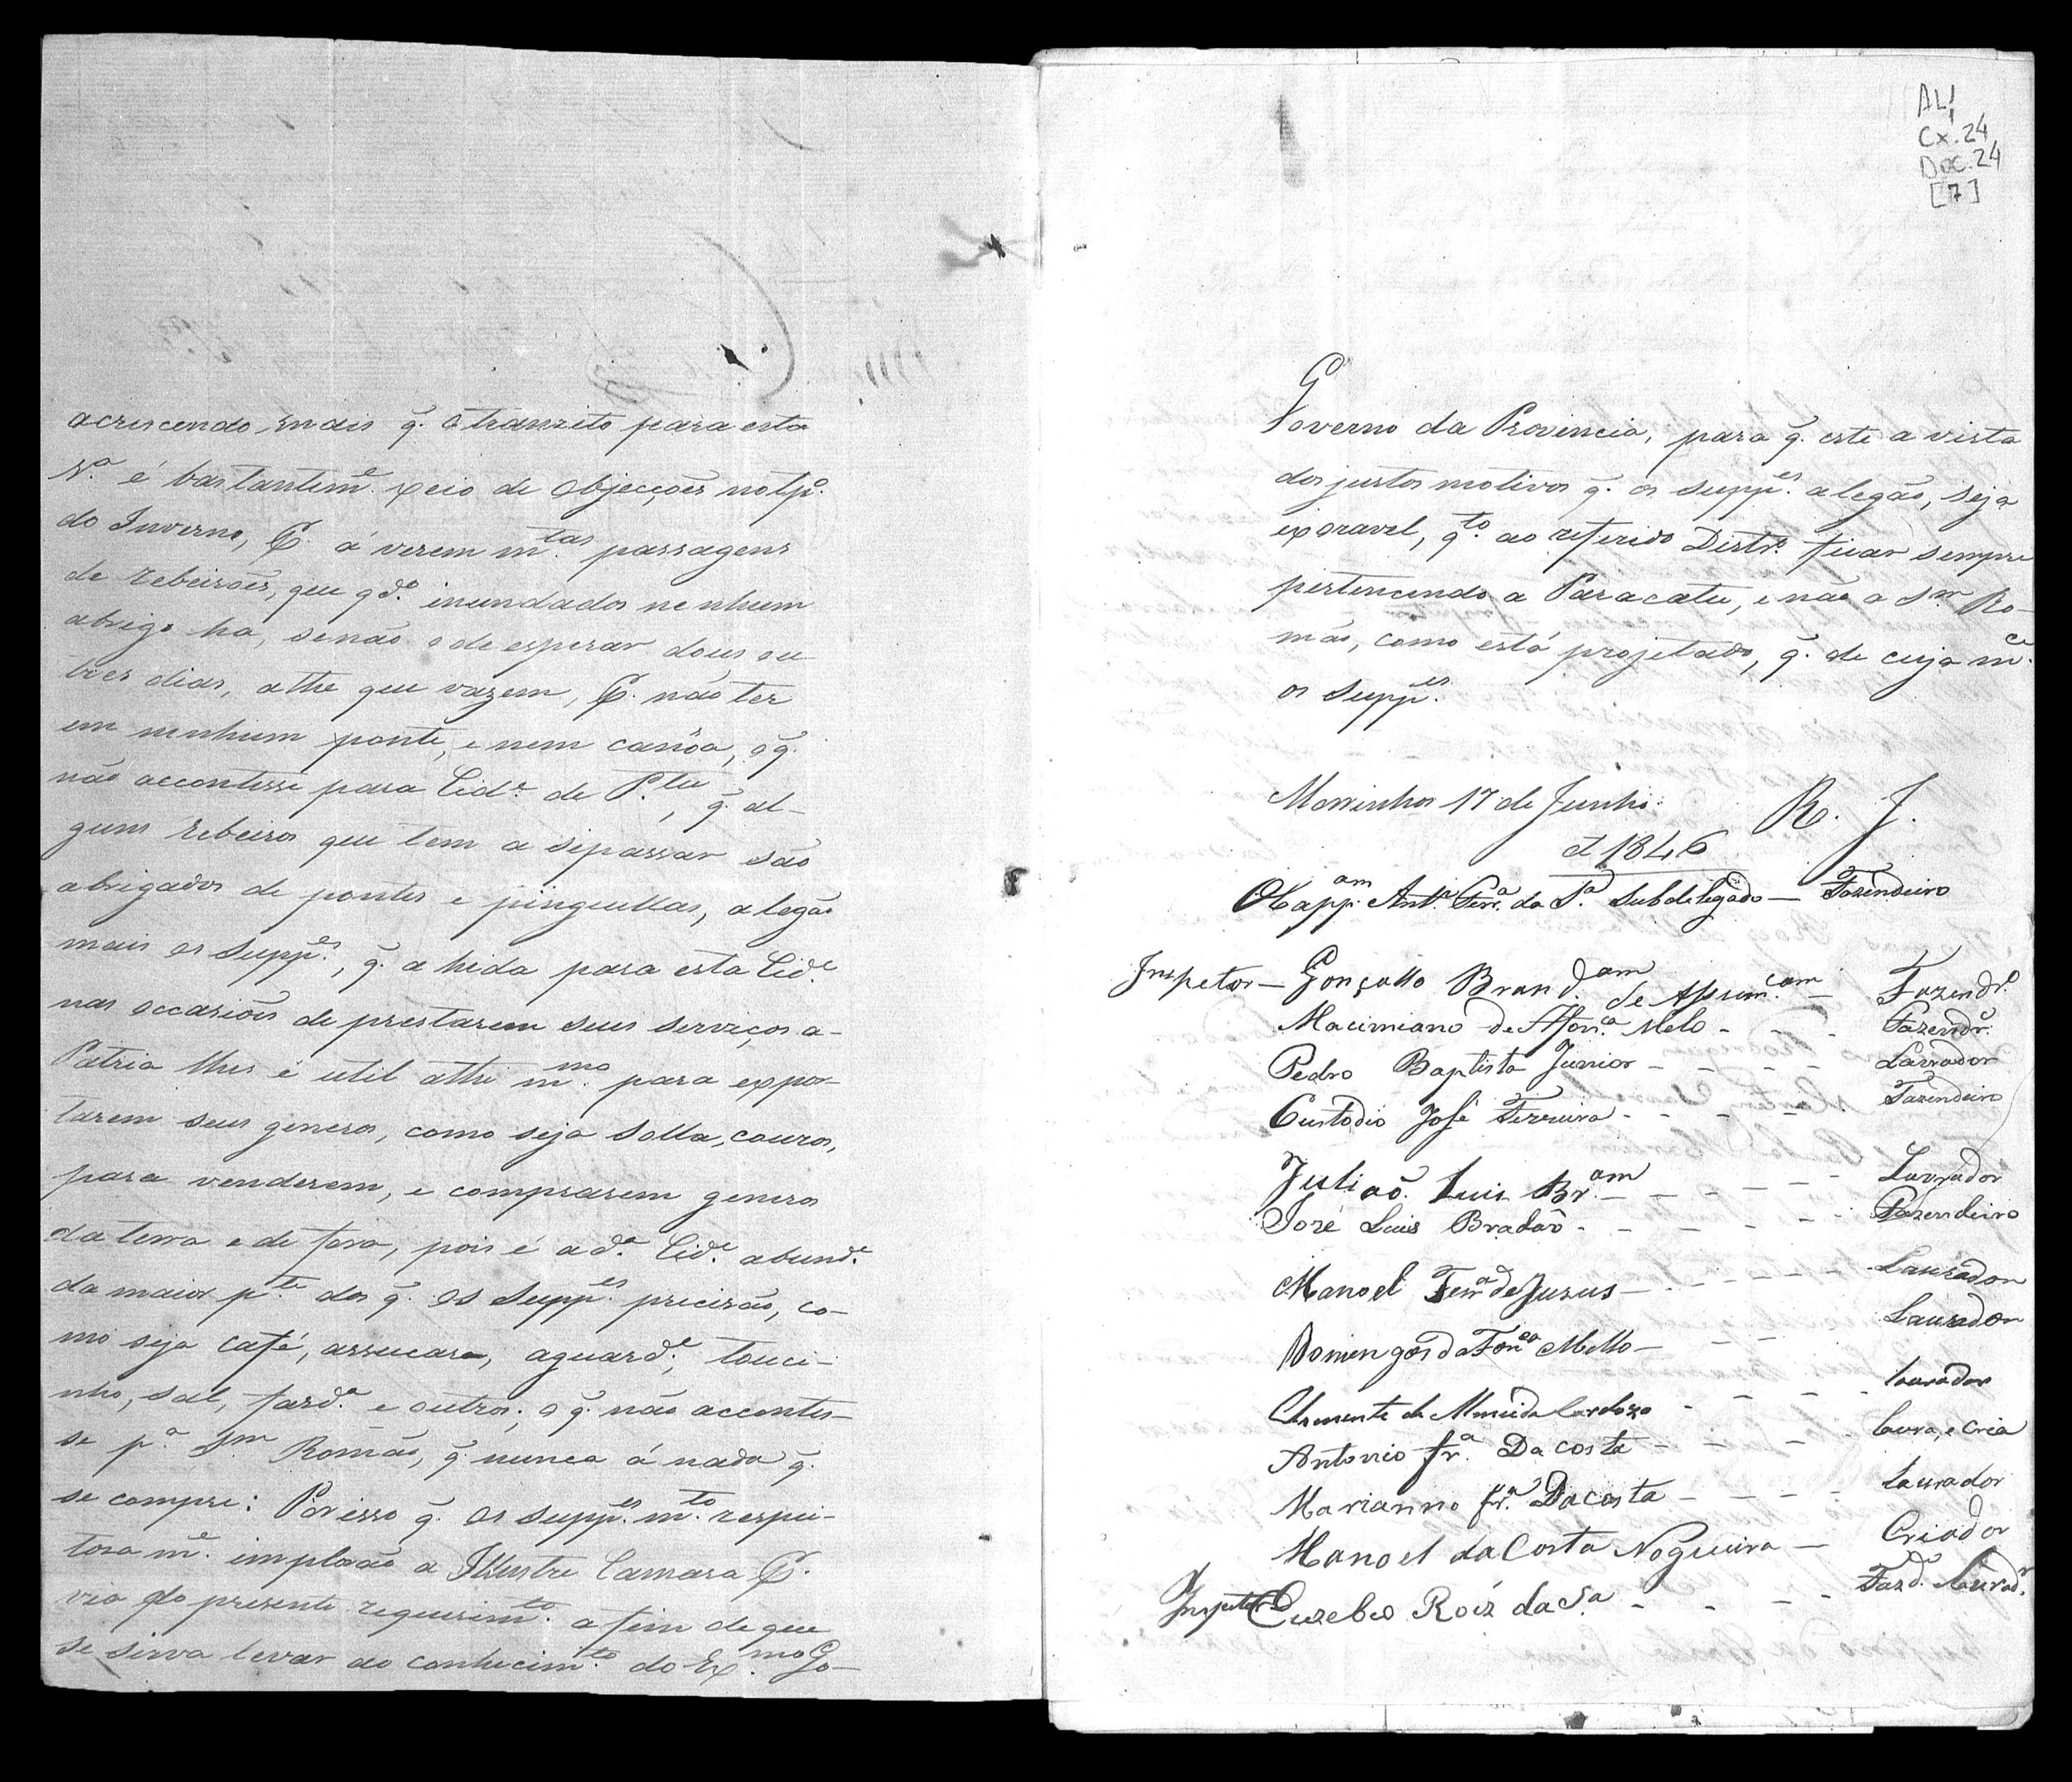 acrescendo mais q̃. o tranzito para esta
V.ª é bastantem.e xeio de objecções no tp.o
do Inverno, P. á verem m.tas passagens
de rebeirões, que qd.o inundados nenhum
abrigo ha, senão o de esperar dous ou
tres dias, athe que vazem, P. não ter
em nenhum ponte, e nem canôa, o q̃.
não accontesse para Cid.e de P.tu, q̃. al-
guns rebeiros que tem a sipassar são
abrigados de pontes e pinguellas, alegão
mais os Supp.es, q̃. a hida para esta Cid.e
nas occasiões de prestarem seus serviços a-
Patria lhes é util athe m.mo para expor-
tarem seus generos, como seja Solla, couros,
para venderem, e comprarem generos
da terra e de fora, pois é a d.ª Cid.e abund.e
da maior p.te dos q̃. os Supp.es precizão, co-
mo seja café, assucare, aguard.e, touci-
nho, sal, fard.ª e outros; o q̃. não acconte-
se p.ª S.m Romão, q̃. nunca á nada q̃.
se compre: Por isso q̃. os supp.es m.to respei-
tosam.e implorão a Illustre Camara P.
via do presente requerim.to a fim de que
se sirva levar ao conhecim.to do Ex.mo Go-
AL1
Cx. 24
Doc. 24
[7]
Governo da Provincia, para q̃. este a vista
dos justos motivos q̃. os supp.es alegão, seja
exoravel, q.to ao referido Distr.o ficar sempre
pertencendo a Paracatu, e não a S.m Ro-
mão, como está projetado, q̃. de cuja m.ce
os Supp.es
R. J.
Morrinhos 17 de Junho
d 1846
O Capp.am Ant.o Ferr.ª da S.ª Subdelegado — Fazendeiro
Inspetor — Gonçallo Brand.am de Assum.cam — Fazend.r
Macimiano de Afon.ca Melo - - - Fazendr.o
Pedro Baptista Junior - - - - Lavrador
Custodio José Ferreira - - - - Fazendeiro
Julião Luis Br.am - - - - - Lavrador
José Luis Bradão - - - - - Fazendeiro
Manoel Ferr.ª de Jusus - - - - Laurador
Domingos da Fon.ca Mello - - - Laurador
Clemente de Almeida Cardozo - - - - laurador
Antonio fr.ª Da costa - - - - laura, e Cria
Marianno fr.ª Da costa - - - - laurador
Manoel da Costa Nogueira — Criador
Inspetor Euzebio Roiz da S.ª - - - - Fazd.o Laurad.r